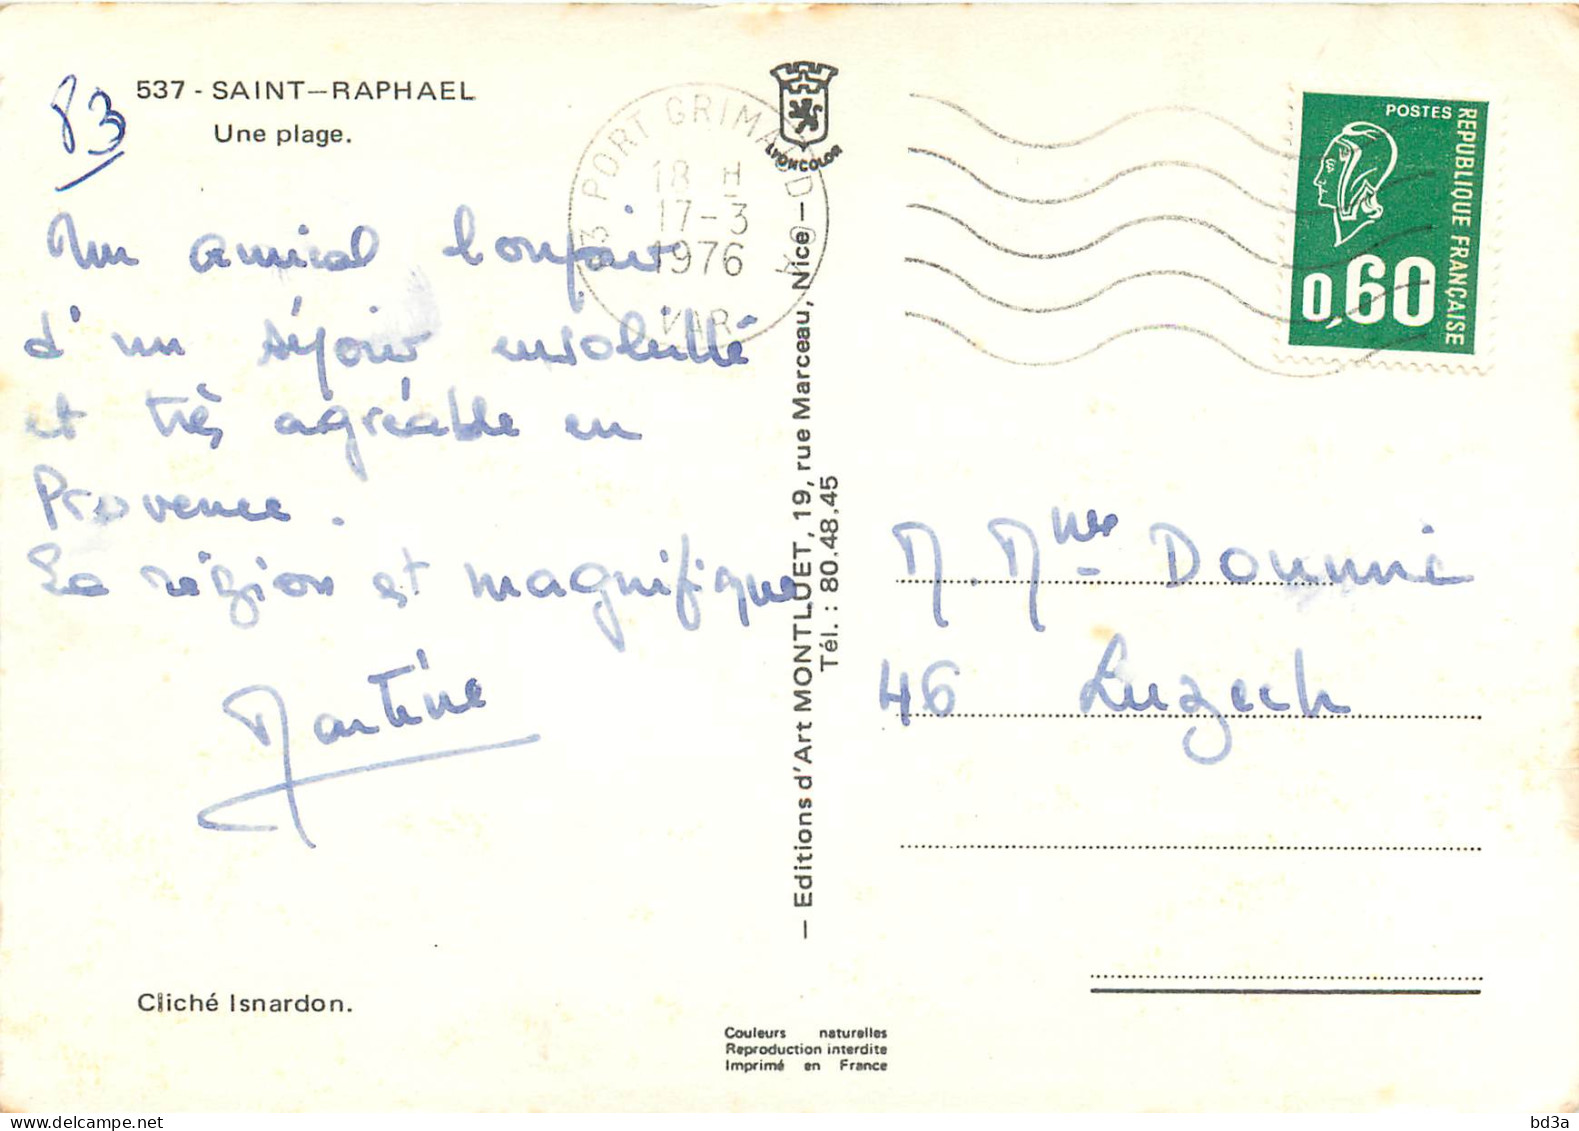 83
537 - SAINT-RAPHAEL
Une plage.
Un amical bonjour
d'un séjour ensoleillé
et très agréable en
Provence.
La région est magnifique
Martine
Cliché Isnardon.
83 PORT GRIMAUD
18 H
17-3
1976
VAR
LYONCOLOR
— Editions d'Art MONTLUET, 19, rue Marceau, Nice —
Tél. : 80.48.45
Couleurs naturelles
Reproduction interdite
Imprimé en France
POSTES
REPUBLIQUE FRANÇAISE
0,60
M. Mme
46 Luzech
bd3a